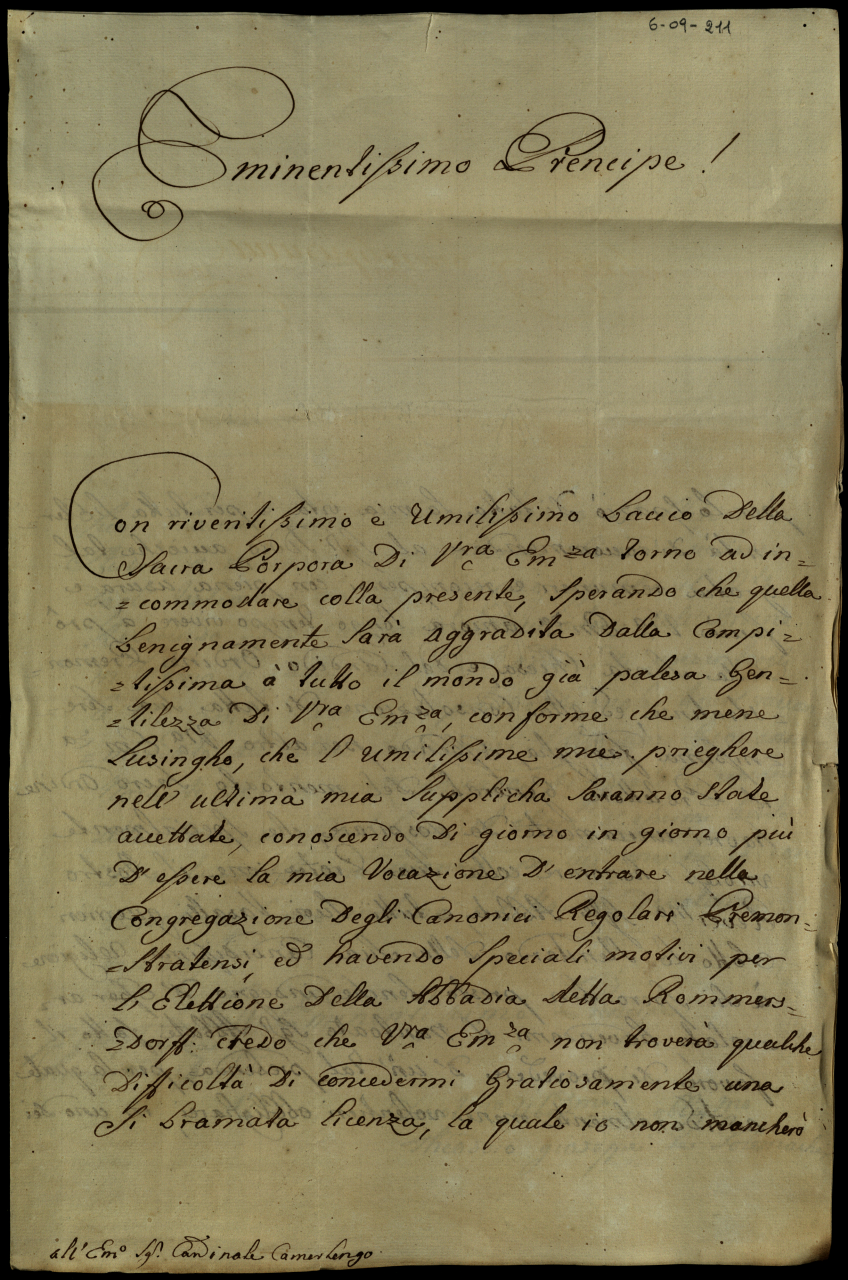 6-09-211
Eminentissimo Prencipe!
Con riventissimo è Umilissimo Baccio Della
Sacra Porpora Di Vra Emza torno ad in=
=commodare colla presente, sperando che quella
benignamente sarà aggradita Dalla Compi=
=tissima à tutto il mondo già palesa Gen=
=tilezza Di Vra Emza; conforme che mene
Lusingho, che l'umilissime mie prieghere
nell'ultima mia supplicha saranno state
accettate, conoscendo Di giorno in giorno più
D'essere la mia Vocazione D'entrare nella
Congregazione Degli Canonici Regolari Premon=
=stratensi, ed havendo speciali motivi per
l'Elettione Della Abbadia detta Rommers=
=Dorff: credo che Vra Emza non troverà qualche
Difficoltà Di concedermi Gratiosamente una
si bramata licenza, la quale io non mancherò
all' Emo Sigr. Cardinale Camerlengo